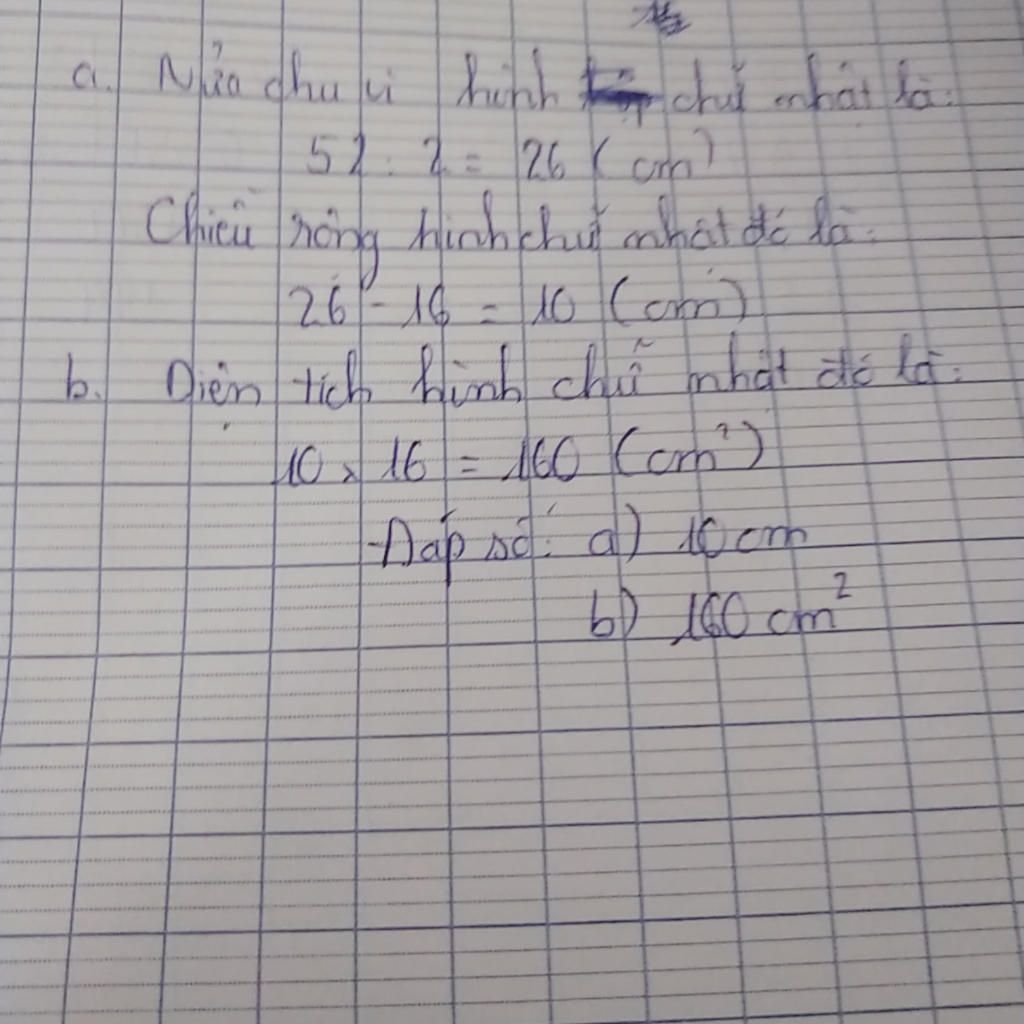 a. Nửa chu vi hình chữ nhật là:
52 : 2 = 26 (cm)
Chiều rộng hình chữ nhật đó là:
26 - 16 = 10 (cm)
b. Diện tích hình chữ nhật đó là:
10 x 16 = 160 (cm²)
Đáp số: a) 10 cm
b) 160 cm²